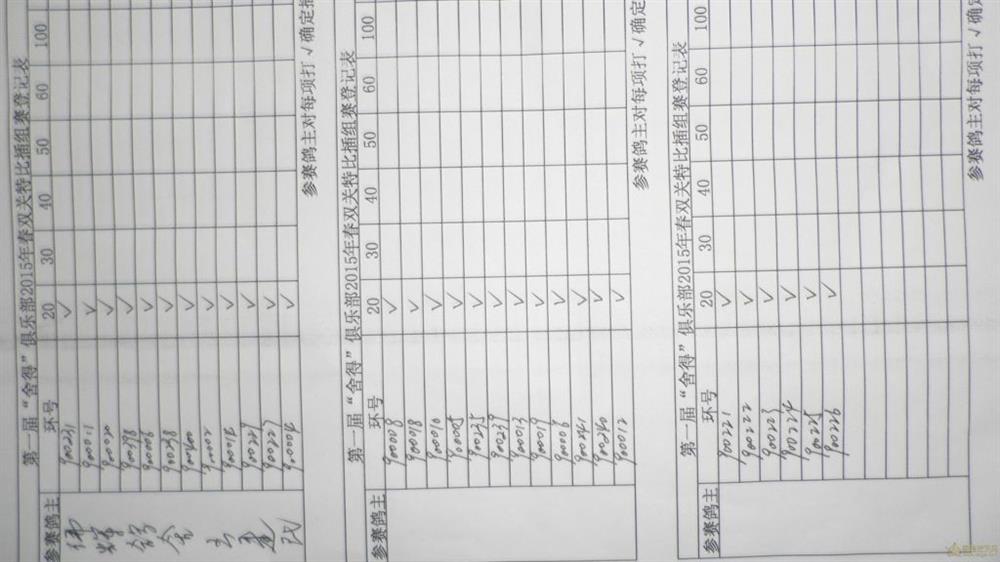 第一届“舍得”俱乐部2015年春双关特比插组赛登记表
参赛鸽主 环号 20 30 40 50 60 100
佛辉鸽舍
900231 √
900011 √
900020 √
900098 √
900006 √
900238 √
900200 √
900002 √
900014 √
900229 √
900207 √
900004 √
参赛鸽主对每项打√确定
第一届“舍得”俱乐部2015年春双关特比插组赛登记表
环号 20 30 40 50 60 100
900008 √
900018 √
900010 √
900005 √
900235 √
900239 √
900013 √
900019 √
900006 √
900241 √
900240 √
900012 √
参赛鸽主对每项打√确定
第一届“舍得”俱乐部2015年春双关特比插组赛登记表
参赛鸽主 环号 20 30 40 50 60 100
900221 √
900222 √
900223 √
900224 √
900225 √
900226 √
参赛鸽主对每项打√确定